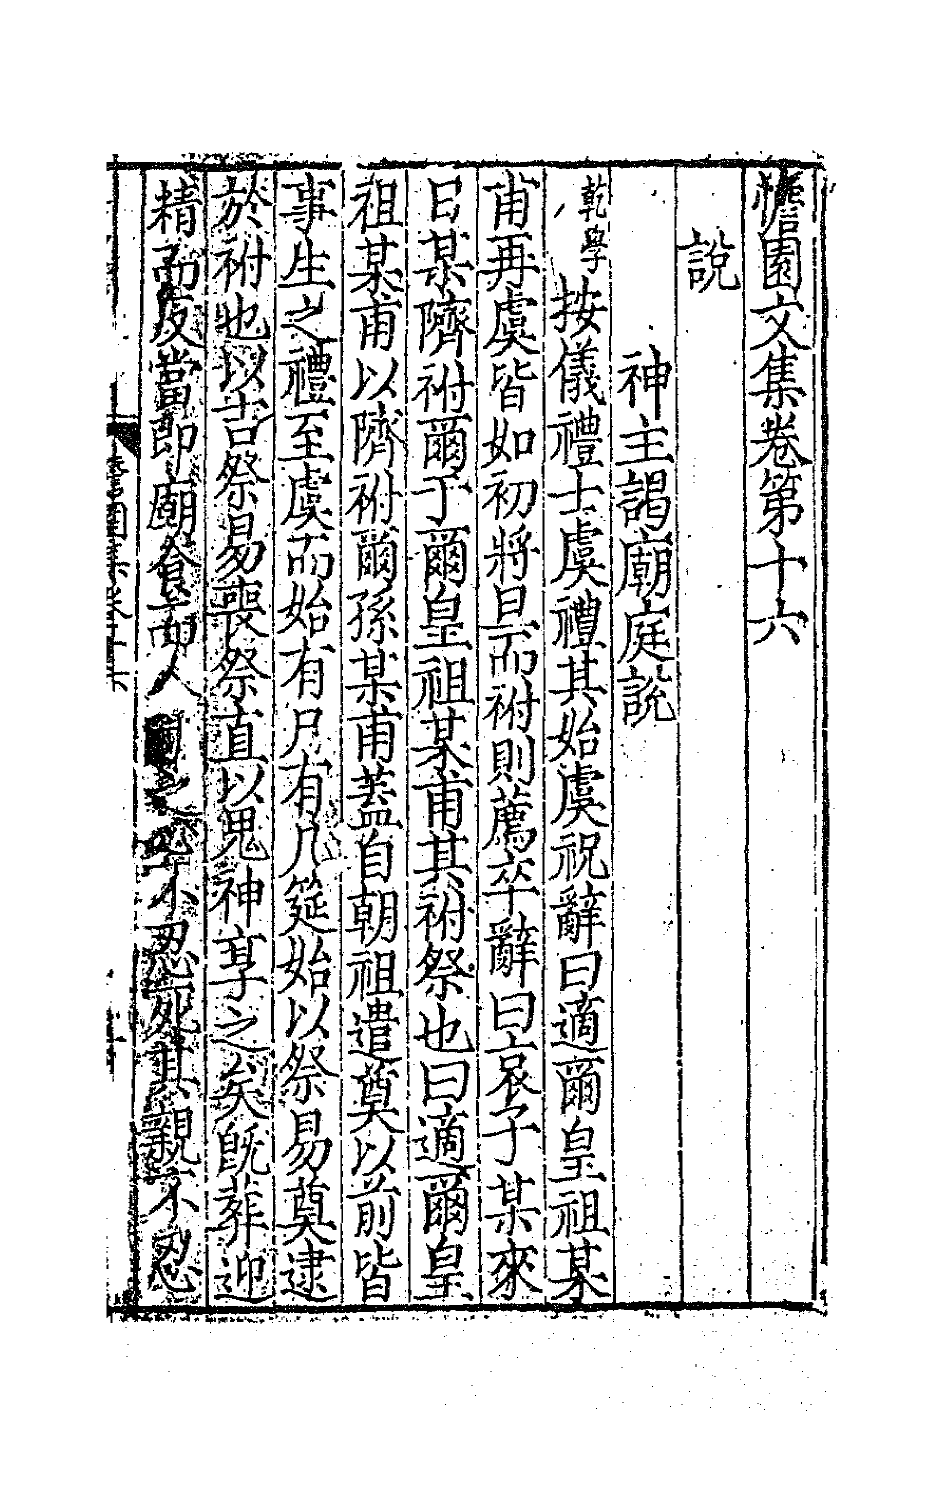 憺園文集卷第十六
說
神主謁廟庭說
乾學按儀禮士虞禮其始虞祝辭曰適爾皇祖某
甫再虞皆如初將旦而祔則薦卒辭曰哀子某來
日某隮祔爾于爾皇祖某甫其祔祭也曰適爾皇
祖某甫以隮祔爾孫某甫蓋自朝祖遣奠以前皆
事生之禮至虞而始有尸有几筵始以祭易奠逮
於祔也以吉祭易喪祭直以鬼神享之矣旣葬迎
精而反當即廟食而人之不忍死其親不忍
憺園集卷十六